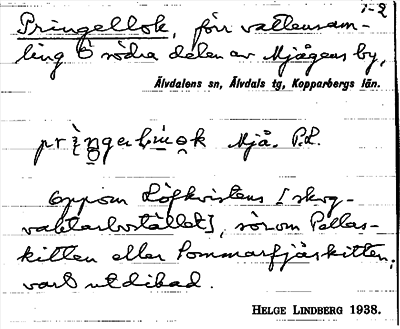 1-2
Pringellok, förr vattensam-
ling i södra delen av Mjågens by,
Älvdalens sn, Älvdals tg, Kopparbergs län.
Mjå. P.L.
Uppom Löfkvistens [skog-
vaktarbostället], söröm Pellas-
kitten eller Sommarfjäskitten;
varb utdikad.
HELGE LINDBERG 1938.